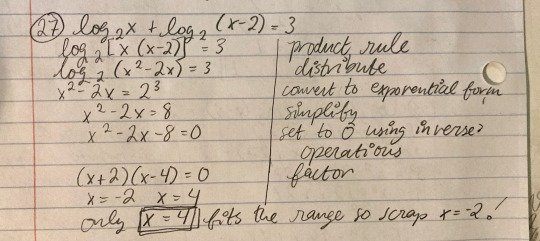 27) log₂x + log₂ (x-2) = 3
log₂ [x (x-2)] = 3 product rule
log₂ (x²-2x) = 3 distribute
x²-2x = 2³ convert to exponential form
x²-2x = 8 simplify
x²-2x-8=0 set to 0 using inverse
operations
(x+2)(x-4) = 0 factor
x = -2 x = 4
only x = 4 fits the range so scrap x=-2!